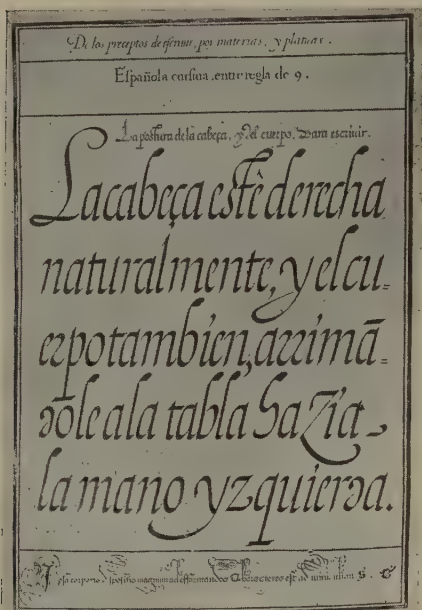 De los preceptos de escriuir, por materias, y platicas.
Española cursiua.entre regla de 9.
La postura de la cabeça, y del cuerpo. Para escriuir.
La cabeça estê derecha
naturalmente, y el cu-
erpo tambien, arrimã=
dole a la tabla hazia
la mano yzquierda.
ad efformandos